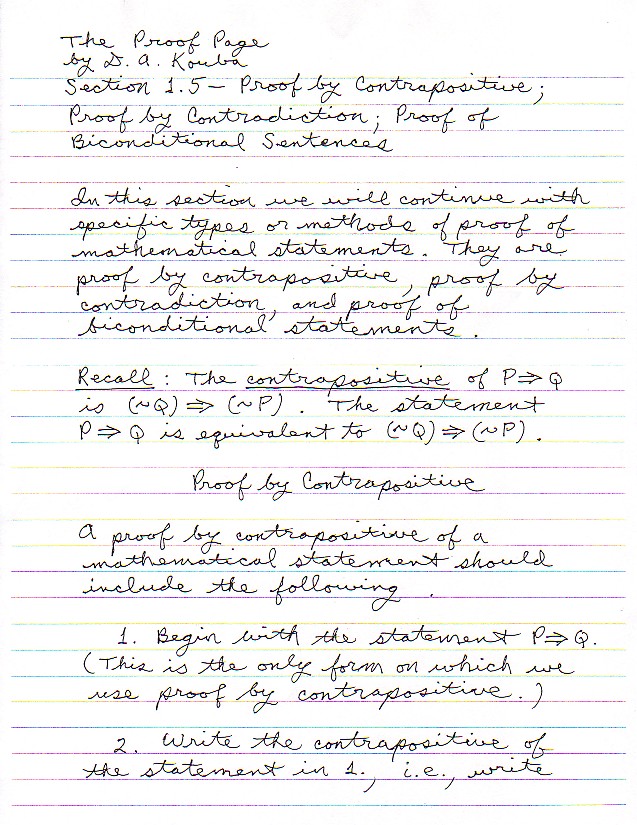 The Proof Page
by D. A. Kouba
Section 1.5 – Proof by Contrapositive;
Proof by Contradiction; Proof of
Biconditional Sentences
In this section we will continue with
specific types or methods of proof of
mathematical statements. They are
proof by contrapositive, proof by
contradiction, and proof of
biconditional statements.
Recall : The contrapositive of P⇒Q
is (~Q) ⇒ (~P). The statement
P⇒Q is equivalent to (~Q) ⇒ (~P).
Proof by Contrapositive
A proof by contrapositive of a
mathematical statement should
include the following.
1. Begin with the statement P⇒Q.
(This is the only form on which we
use proof by contrapositive.)
2. Write the contrapositive of
the statement in 1., i.e., write